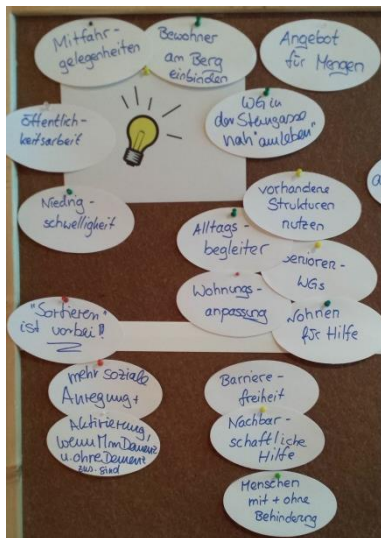 Mitfahr-
gelegenheiten
Bewohner
am Berg
einbinden
Angebot
für Mengen
öffentlich-
keitsarbeit
WG in
der Steingasse
nah "am leben"
Niedrig-
schwelligkeit
vorhandene
Strukturen
nutzen
Alltags-
begleiter
Senioren-
WGs
Wohnungs-
anpassung
Wohnen
für Hilfe
"Sortieren"
ist vorbei!!
mehr soziale
Anregung +
Aktivierung,
wenn Mm Demenz
u. ohne Demenz
zus. sind
Barriere-
freiheit
Nachbar-
schaftliche
Hilfe
Menschen
mit + ohne
Behinderung